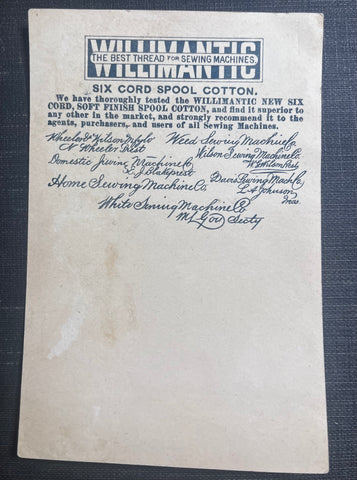 WILLIMANTIC
THE BEST THREAD FOR SEWING MACHINES
SIX CORD SPOOL COTTON.
We have thoroughly tested the WILLIMANTIC NEW SIX
CORD, SOFT FINISH SPOOL COTTON, and find it superior to
any other in the market, and strongly recommend it to the
agents, purchasers, and users of all Sewing Machines.
Wheeler & Wilson Mfg Co
N Wheeler Prest
Weed Sewing Machine Co
Wilson Sewing Machine Co.
W.G. Wilson Prest
Domestic Sewing Machine Co
Prest
Davis Sewing Mach Co
L A Johnson
Treas
Home Sewing Machine Co
White Sewing Machine Co
Secty